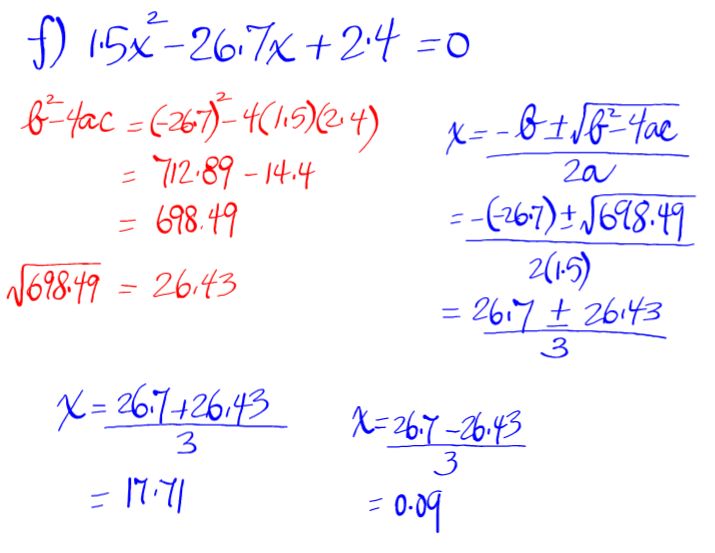 f) 1.5x² - 26.7x + 2.4 = 0
b² - 4ac = (-26.7)² - 4(1.5)(2.4)
= 712.89 - 14.4
= 698.49
√698.49 = 26.43
x = -b ± √b² - 4ac
2a
= -(-26.7) ± √698.49
2(1.5)
= 26.7 ± 26.43
3
x = 26.7 + 26.43
3
= 17.71
x = 26.7 - 26.43
3
= 0.09